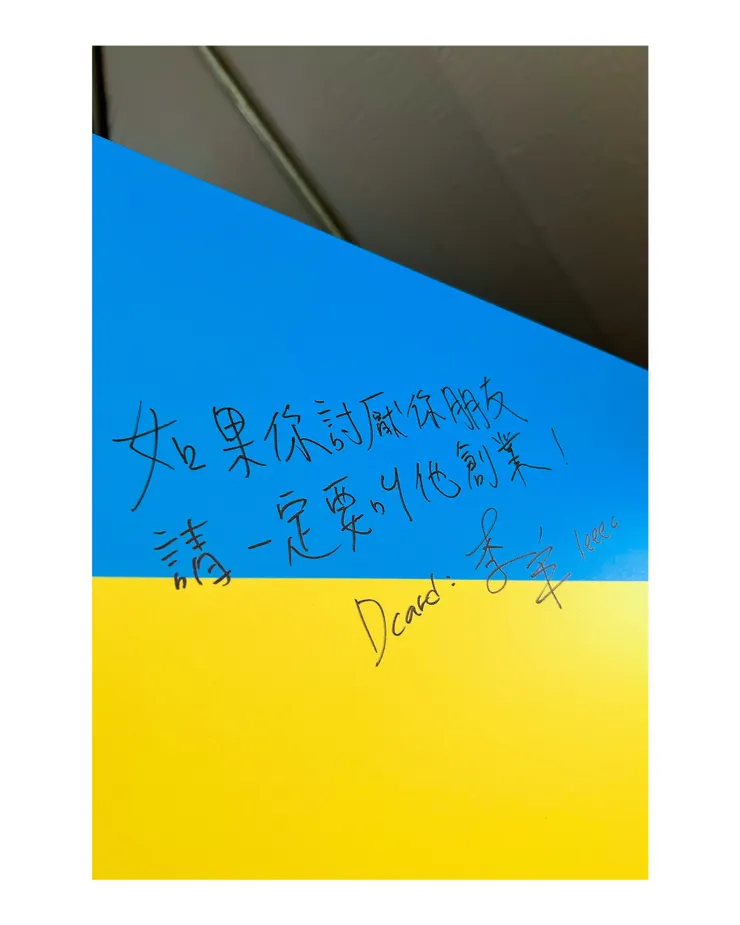 如果你討厭你朋友
請一定要叫他創業!
Dcard: 李